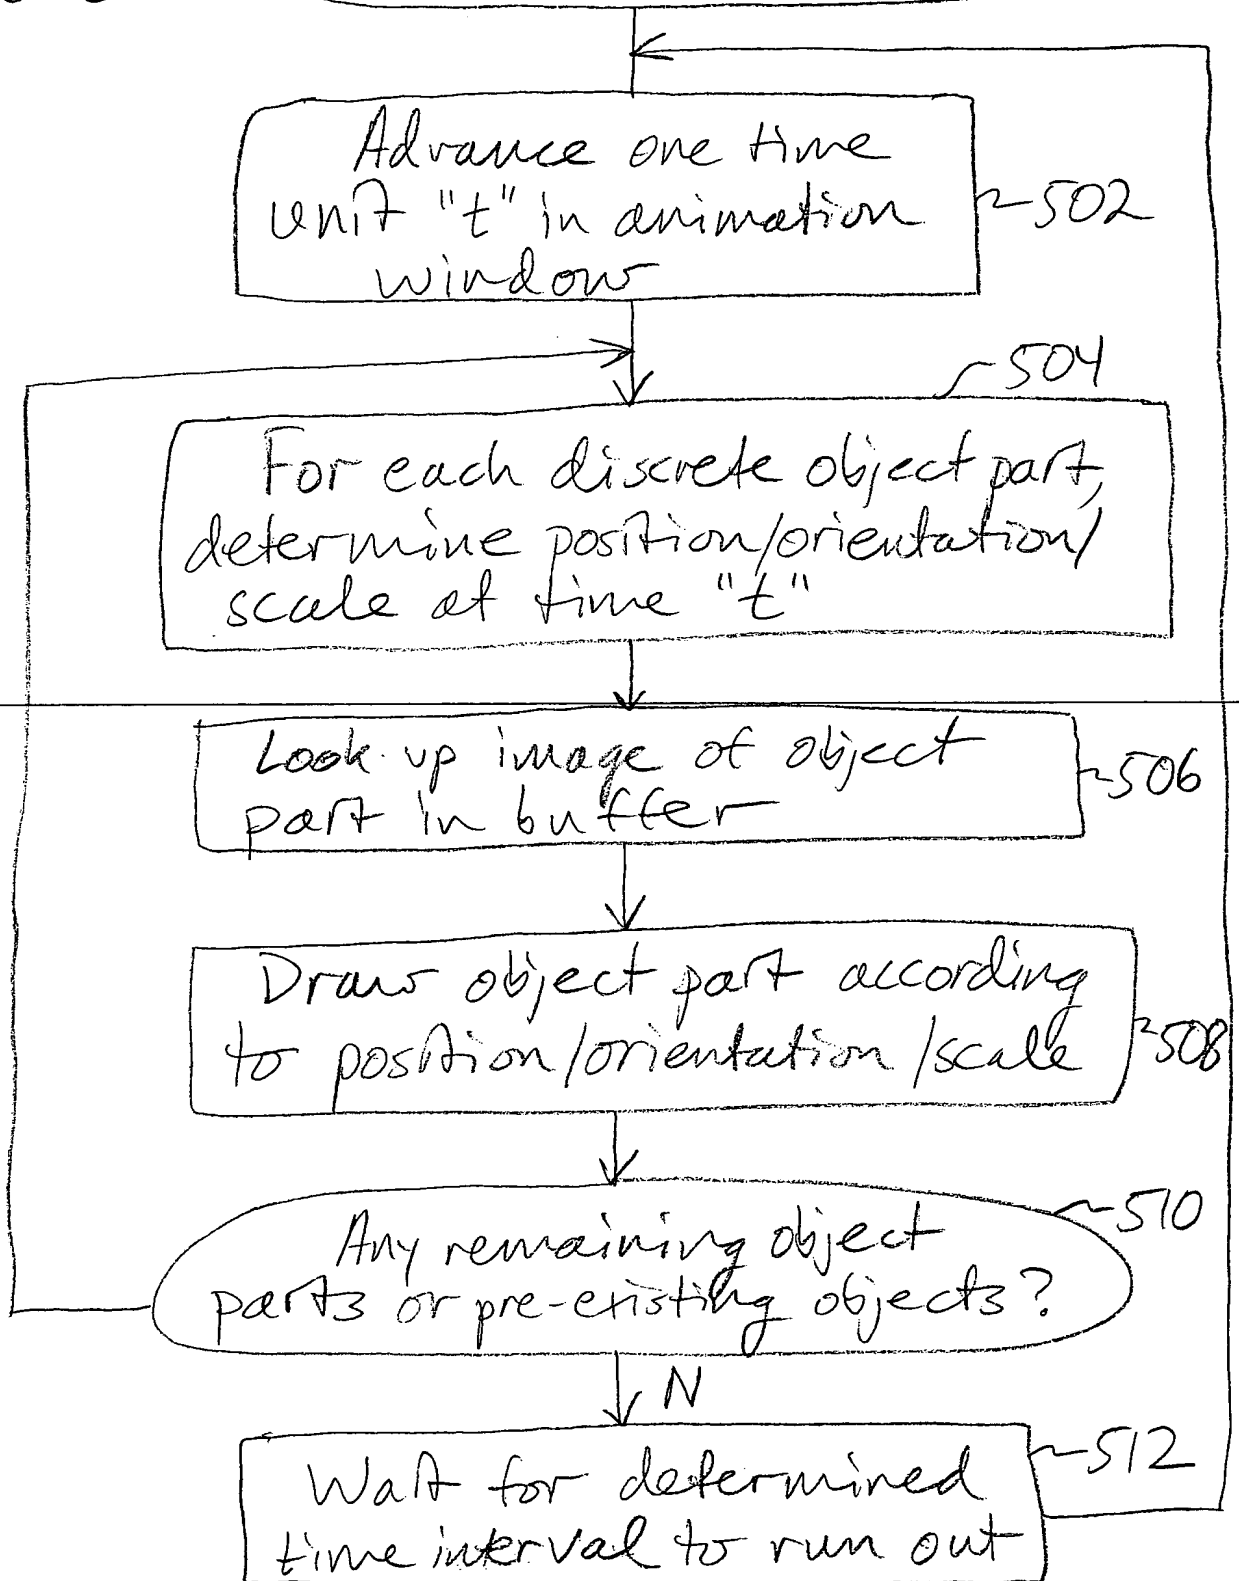 Advance one time
unit "t" in animation
window
502
504
For each discrete object part,
determine position/orientation/
scale at time "t"
Look up image of object
part in buffer
506
Draw object part according
to position/orientation/scale
508
510
Any remaining object
parts or pre-existing objects?
N
512
Wait for determined
time interval to run out